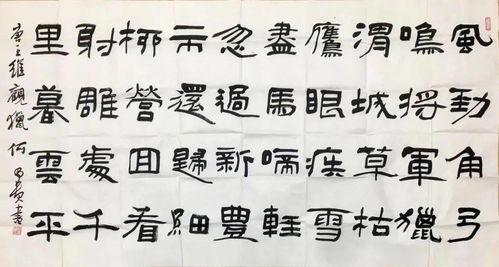 風劲角弓
鳴将軍獵
渭城草枯
鷹眼疾雪
盡馬啼軽
忽過新豊
市還歸細
柳營回看
射雕處千
里暮雲平
唐王維觀獵 何書